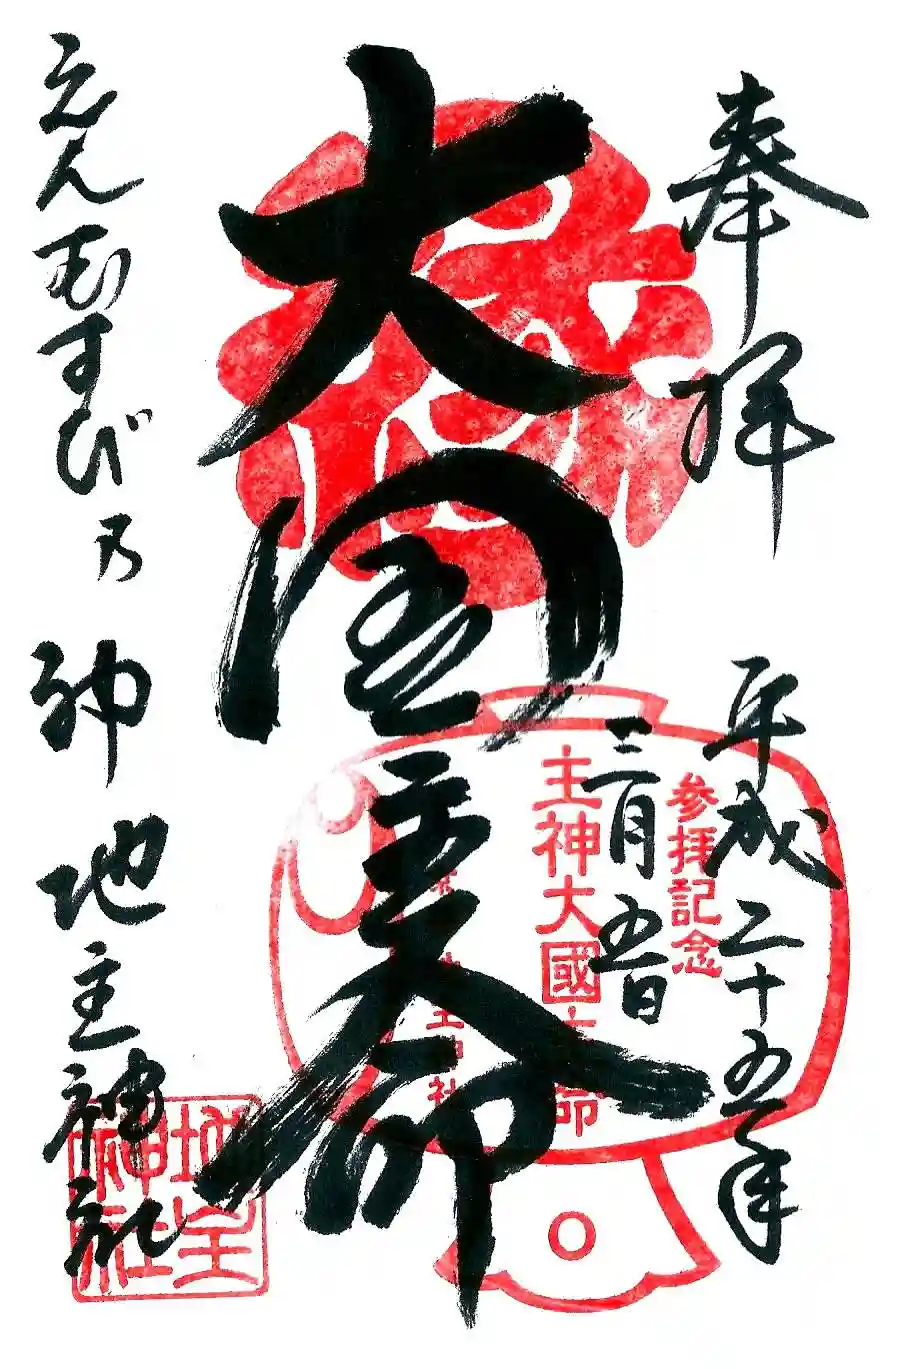 奉拝
平成二十五年
三月五日
参拝記念
主神大國主命
大国主命
えんむすび乃神地主神社
地主神社